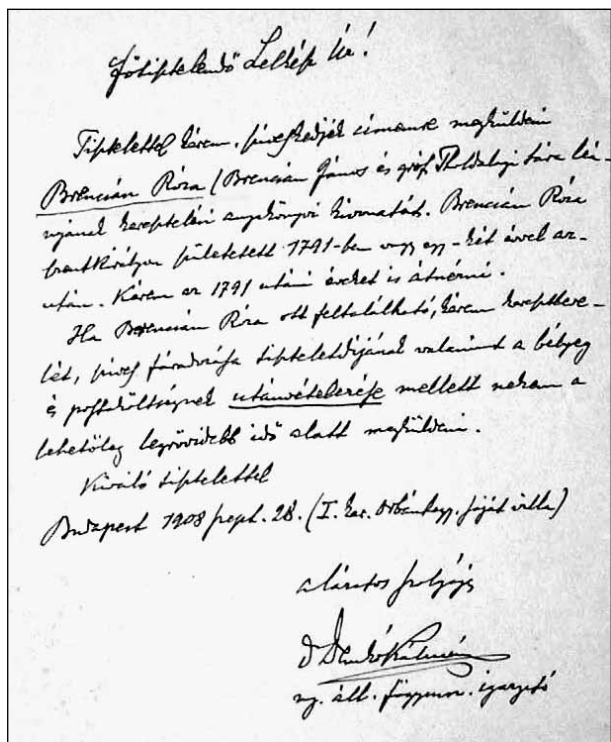 Főtisztelendő Lelkész Úr!
Tisztelettel kérem, szíveskedjék címemre megküldeni
Brencsán Róza (Brencsán János és gróf Tholdalagi Sára leá-
nyának keresztelési anyakönyvi kivonatát. Brencsán Róza
szentkirályon született 1791-ben vagy egy-két évvel az-
után. Kérem az 1791 utáni éveket is átnézni.
Ha Brencsán Róza ott feltalálható, kérem keresztleve-
lét, szíves fáradozása tiszteletdíjának valamint a bélyeg
és postaköltségnek utánvételezése mellett nekem a
lehetőleg legrövidebb idő alatt megküldeni.
Kiváló tisztelettel
Budapest 1908 szept. 28. (I. ker. Orbánhegy. saját villa)
alázatos szolgája
Dr Demkó Kálmán
ny. áll. főgymn. igazgató